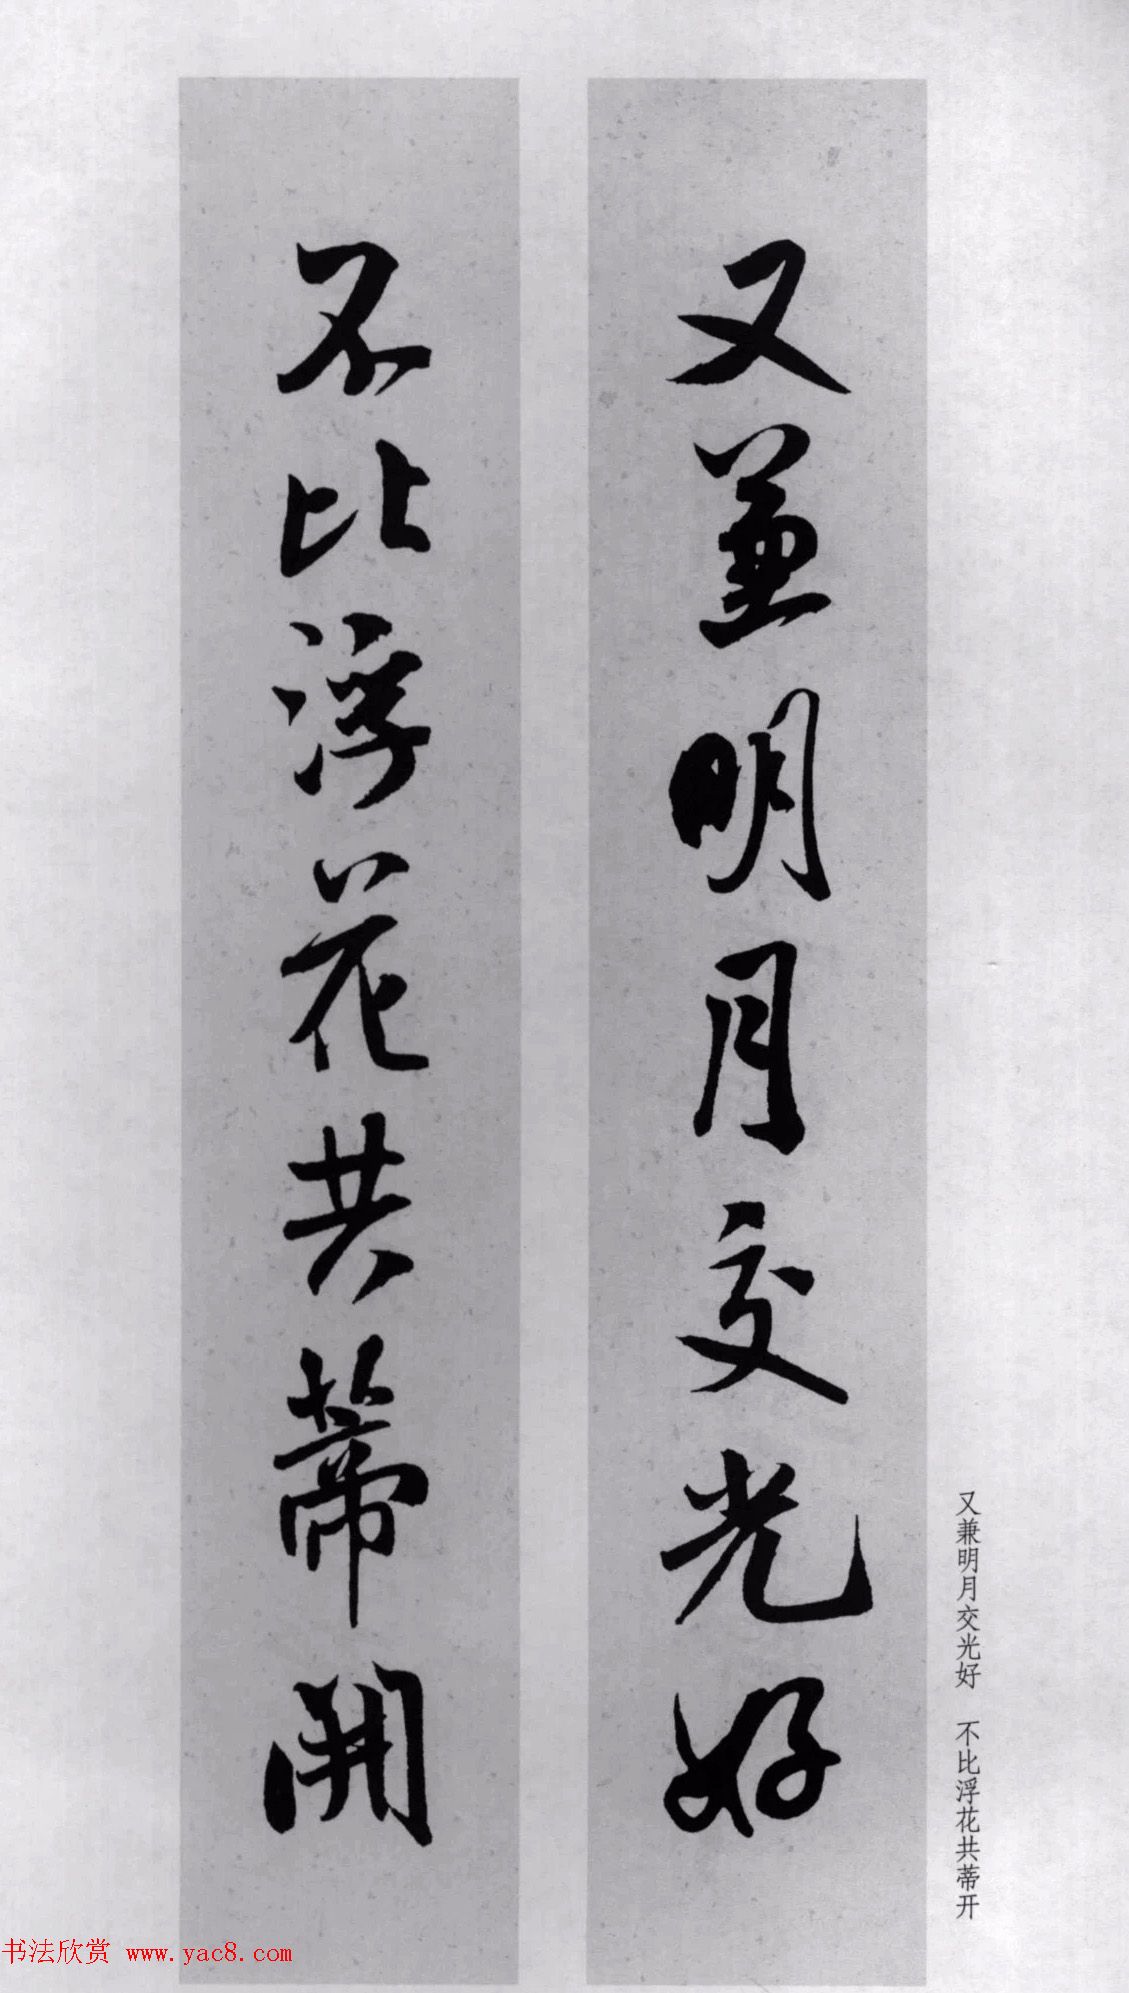 又兼明月交光好
不比浮花共蒂開
又兼明月交光好　不比浮花共蒂开
书法欣赏 www.yac8.com